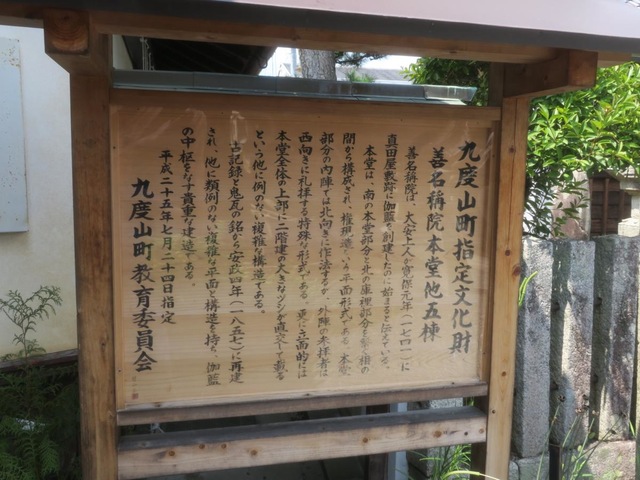 九度山町指定文化財
善名稱院本堂他五棟
善名稱院は、大安上人が寛保元年（一七四一）に
真田屋敷跡に伽藍を創建したのに始まると伝えている。
本堂は、南の本堂部分と北の庫裡部分を繋ぐ相の
間から構成され、権現造という平面形式である。本堂
部分の内陣では北向きに作法するが、外陣の参拝者は
西向きに礼拝する特殊な形式である。更に立面的には
本堂全体の上部に二階建の大きなツシが直交して載る
という他に例のない複雑な構造である。
古記録と鬼瓦の銘から安政四年（一八五七）に再建
され、他に類例のない複雑な平面と構造を持ち、伽藍
の中枢をなす貴重な建造である。
平成二十五年七月二十四日指定
九度山町教育委員会